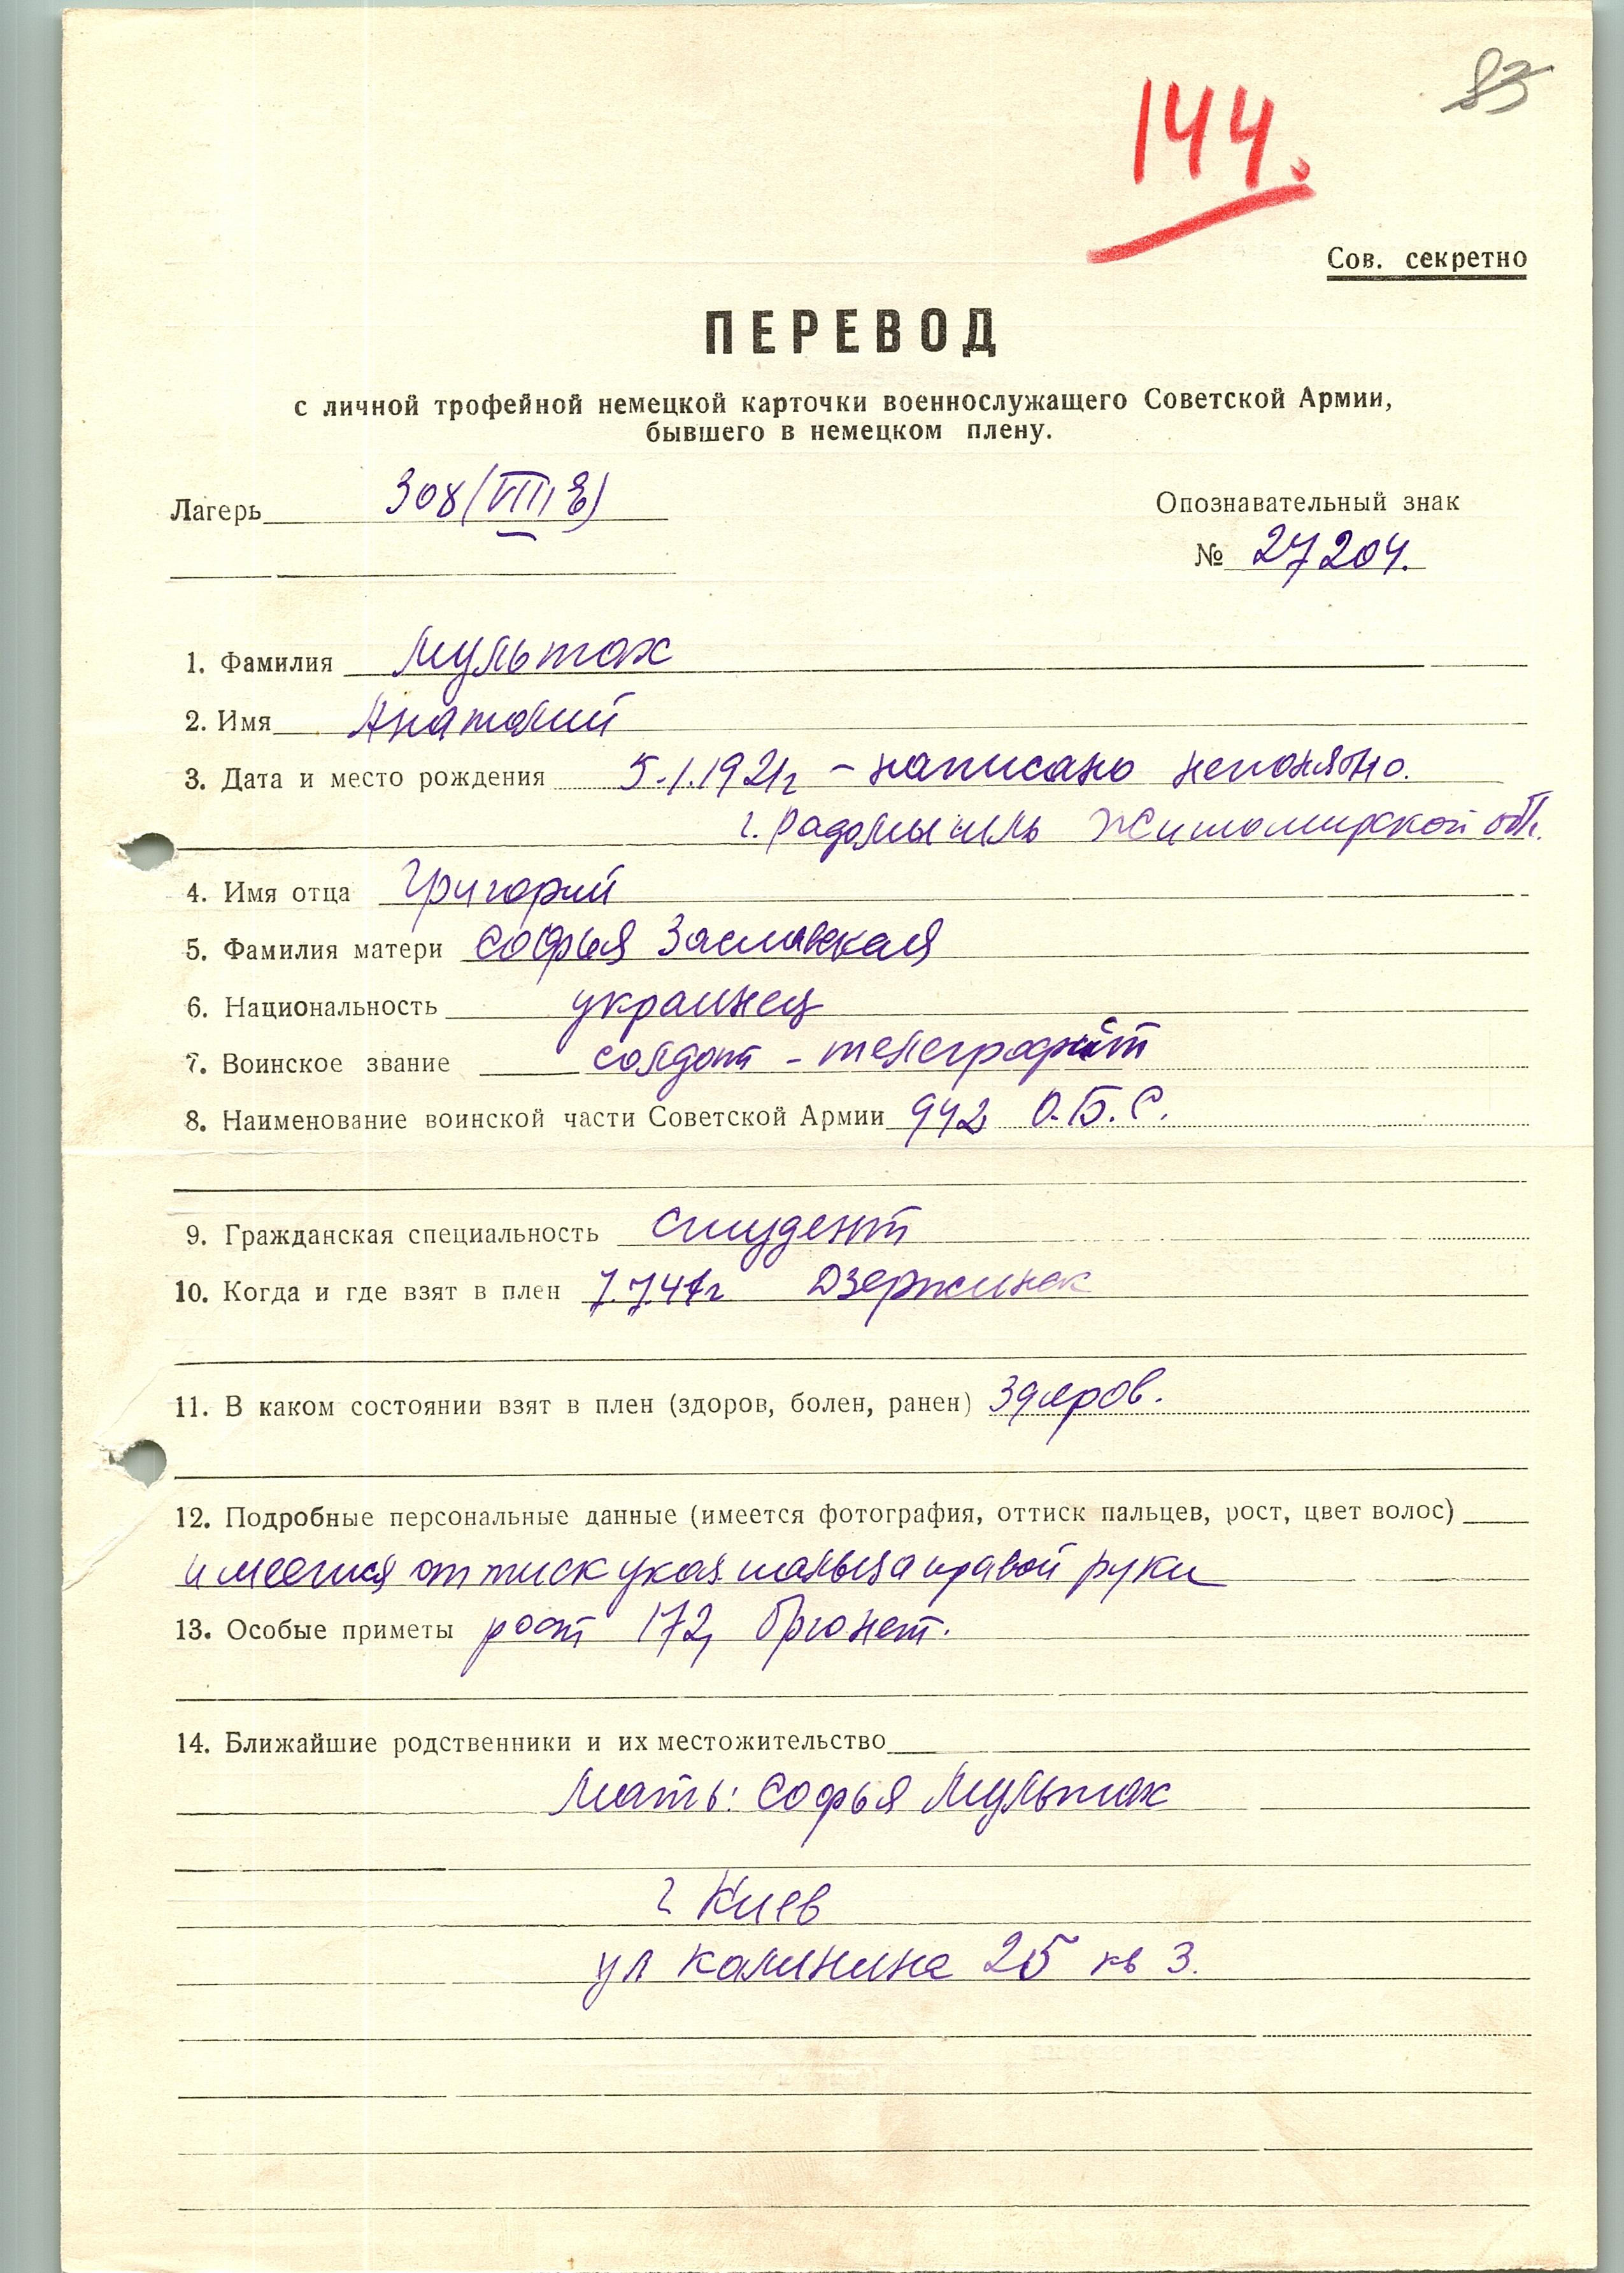 83
144.
Сов. секретно
ПЕРЕВОД
с личной трофейной немецкой карточки военнослужащего Советской Армии,
бывшего в немецком плену.
Лагерь 308 (VIII E)
Опознавательный знак
№ 27204.
1. Фамилия Мультах
2. Имя Анатолий
3. Дата и место рождения 5.1.1921г – написано непонятно.
г. Радомышль Житомирской обл.
4. Имя отца Григорий
5. Фамилия матери Софья Заславская
6. Национальность украинец
7. Воинское звание солдат - телеграфист
8. Наименование воинской части Советской Армии 942 О.Б.С.
9. Гражданская специальность студент
10. Когда и где взят в плен 7.7.41г Дзержинск
11. В каком состоянии взят в плен (здоров, болен, ранен) здоров.
12. Подробные персональные данные (имеется фотография, оттиск пальцев, рост, цвет волос)
имеется оттиск указ. пальца правой руки
13. Особые приметы рост 172, брюнет.
14. Ближайшие родственники и их местожительство
Мать: Софья Мультах
г Киев
ул Калинина 25 кв 3.